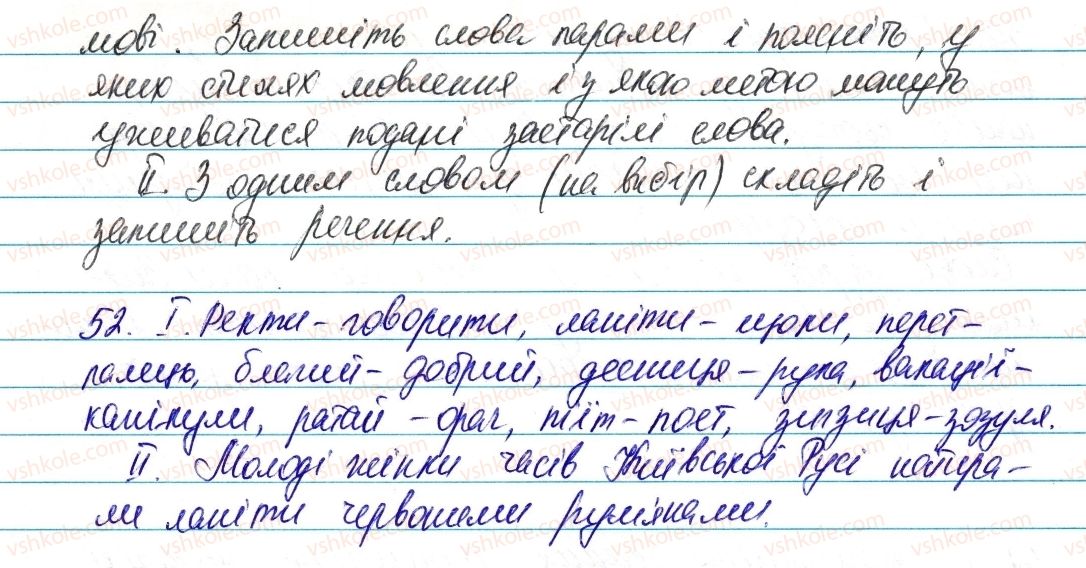 мові. Запишіть слова парами і поясніть, у
яких стилях мовлення і з якою метою можуть
уживатися подані застарілі слова.
II. З одним словом (на вибір) складіть і
запишіть речення.
52. I. Ректи – говорити, ланіти – щоки, перст –
палець, благий – добрий, десниця – рука, вакації –
канікули, ратай – орач, піїт – поет, зигзиця – зозуля.
II. Молоді жінки часів Київської Русі натира–
ли ланіти червоними рум'янами.